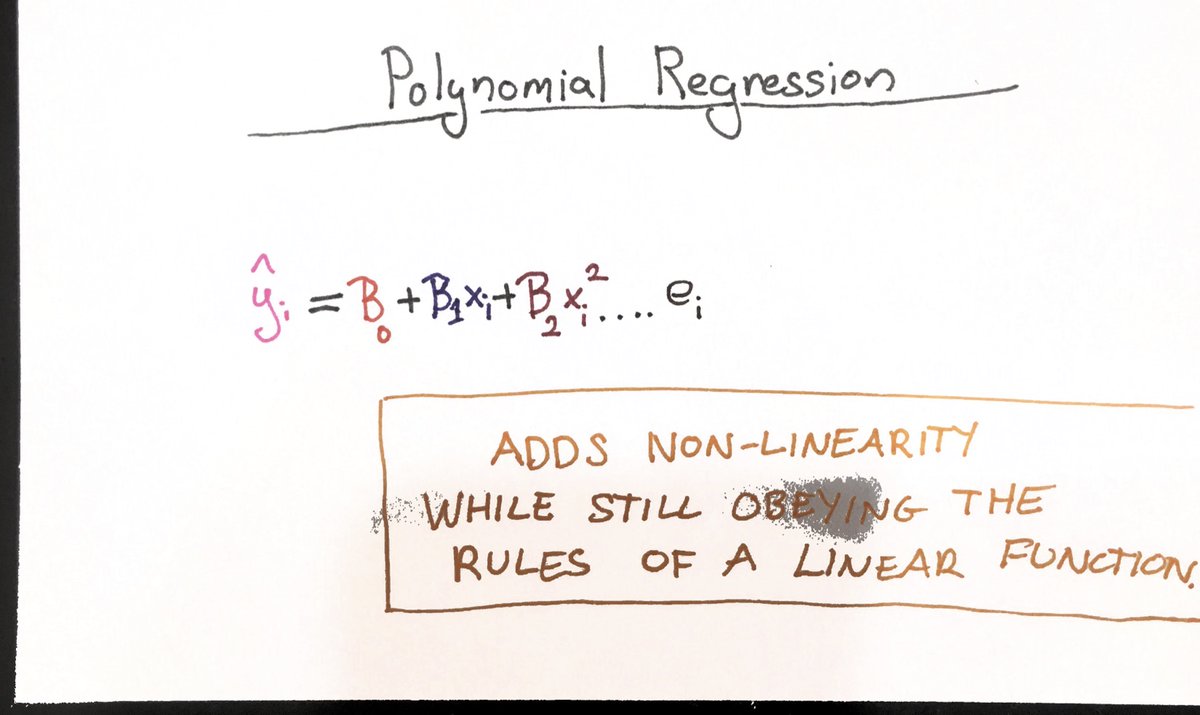 Polynomial Regression
ŷᵢ = B₀ + B₁xᵢ + B₂xᵢ² .... eᵢ
ADDS NON-LINEARITY
WHILE STILL OBEYING THE
RULES OF A LINEAR FUNCTION.